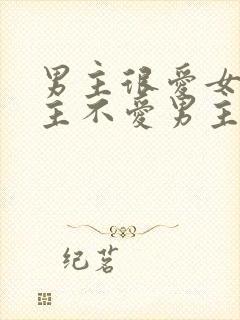 男主很爱女
主不爱男主
纪茗